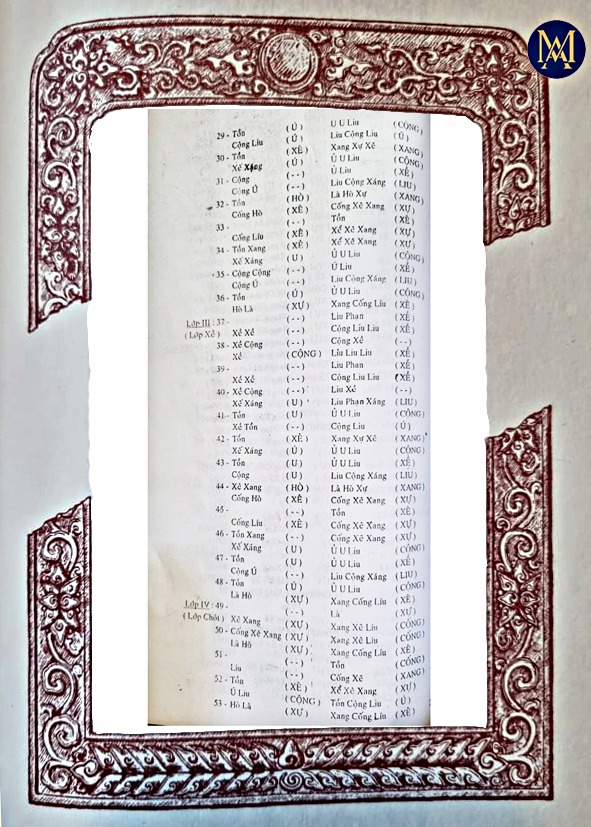 29 - Tồn (Ú) U U Liu (CỘNG)
Cộng Liu (XÊ) Liu Cộng Liu (Ú)
30 - Tồn (Ú) Xang Xự Xê (XANG)
Xế Xảng (--) Ủ U Liu (CỘNG)
31 - Cộng (--) Ủ Liu (XỀ)
Cộng Ú (HÒ) Liu Cộng Xáng (LIU)
32 - Tồn (XÊ) Là Hò Xự (XANG)
Cống Hò (--) Cống Xê Xang (XỰ)
33 - (XÊ) Tồn (XÊ)
Cống Líu (XÊ) Xể Xê Xang (XỰ)
34 - Tồn Xang (U) Xể Xê Xang (XỰ)
Xế Xáng (--) Ủ U Liu (CỘNG)
35 - Cộng Cộng (--) Ú Liu (XỀ)
Cộng Ú (Ú) Liu Cộng Xáng (LIU)
36 - Tồn (XỰ) Ủ U Liu (CỘNG)
Hò Là (--) Xang Cống Líu (XÊ)
Lớp III : 37 - (--) Liu Phan (XỀ)
(Lớp Xề) Xề Xề (--) Cộng Liu Liu (XỀ)
38 - Xề Cộng (CỘNG) Cộng Xề (--)
Xề (--) Liu Liu Liu (XỀ)
39 - (--) Liu Phan (XỀ)
Xề Xề (--) Cộng Liu Liu (XỀ)
40 - Xề Cộng (U) Liu Xề (--)
Xế Xáng (U) Liu Phan Xáng (LIU)
41 - Tồn (--) Ủ U Liu (CỘNG)
Xề Tồn (XÊ) Cộng Liu (Ú)
42 - Tồn (U) Xang Xự Xê (XANG)
Xế Xáng (U) Ủ U Liu (CỘNG)
43 - Tồn (U) Ủ U Liu (XỀ)
Cộng (HÒ) Liu Cộng Xáng (LIU)
44 - Xê Xang (XÊ) Là Hò Xự (XANG)
Cống Hò (--) Cống Xê Xang (XỰ)
45 - (XÊ) Tồn (XÊ)
Cống Líu (--) Cống Xê Xang (XỰ)
46 - Tồn Xang (U) Cống Xê Xang (XỰ)
Xế Xáng (U) Ủ U Liu (CỘNG)
47 - Tồn (--) Ủ U Liu (XỀ)
Cộng Ú (Ú) Liu Cộng Xáng (LIU)
48 - Tồn (XỰ) Ủ U Liu (CỘNG)
Là Hò (--) Xang Cống Líu (XÊ)
Lớp IV : 49 - (XỰ) Là (XỰ)
(Lớp Chót) Xê Xang (XỰ) Xang Xê Líu (CỐNG)
50 - Cống Xê Xang (XỰ) Xang Xê Líu (CỐNG)
Là Hò (--) Xang Cống Líu (XÊ)
51 - (--) Tồn (CỐNG)
Liu (XÊ) Cống Xê (XANG)
52 - Tồn (CỘNG) Xể Xê Xang (XỰ)
Ú Liu (XỰ) Tồn Cộng Liu (Ú)
53 - Hò Là Xang Cống Líu (XÊ)